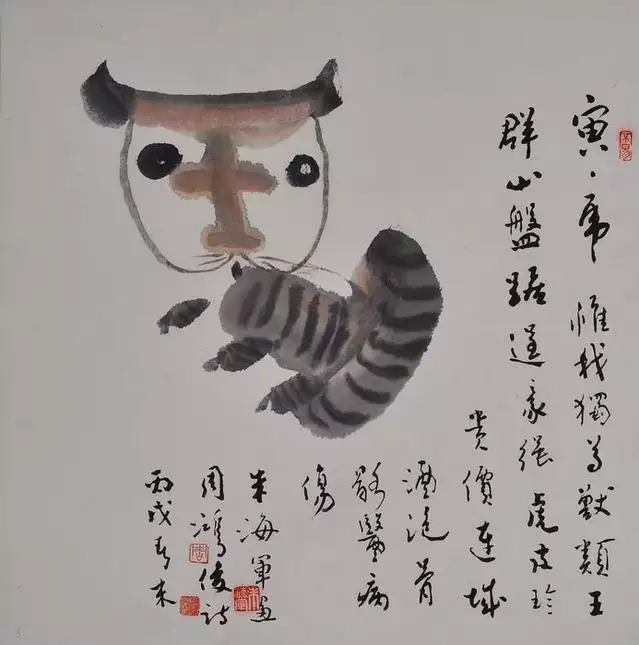 寅、虎 惟我獨尊獸類王
群山盤踞逞豪强 虎皮珍
貴價連城
酒泡骨
骸醫病
傷
朱海軍畫
周鴻俊詩
丙戌春末
3